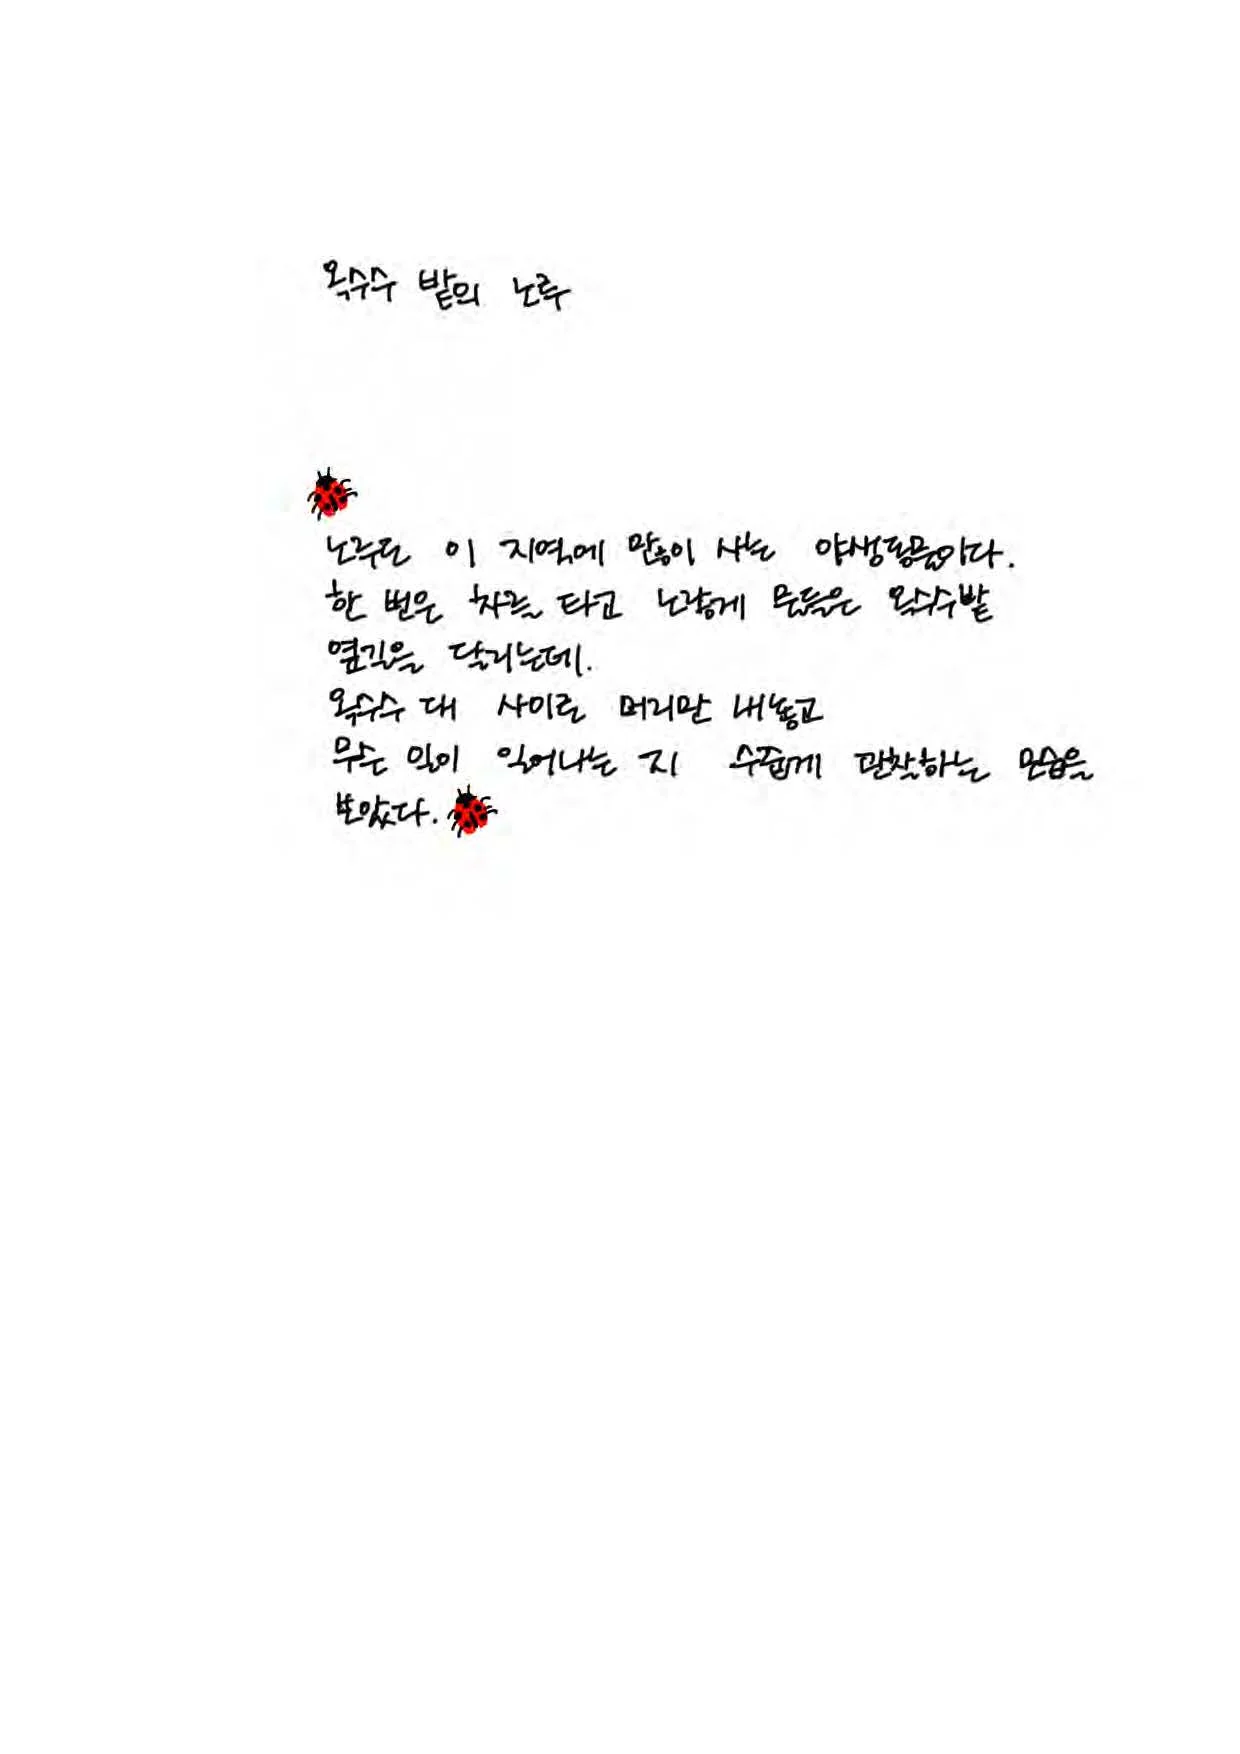 옥수수 밭의 노루
노루는 이 지역에 많이 사는 야생동물이다.
한 번은 차를 타고 노랗게 물들은 옥수수밭
옆길을 달리는데.
옥수수 대 사이로 머리만 내놓고
무슨 일이 일어나는 지 수줍게 관찰하는 모습을
보았다.